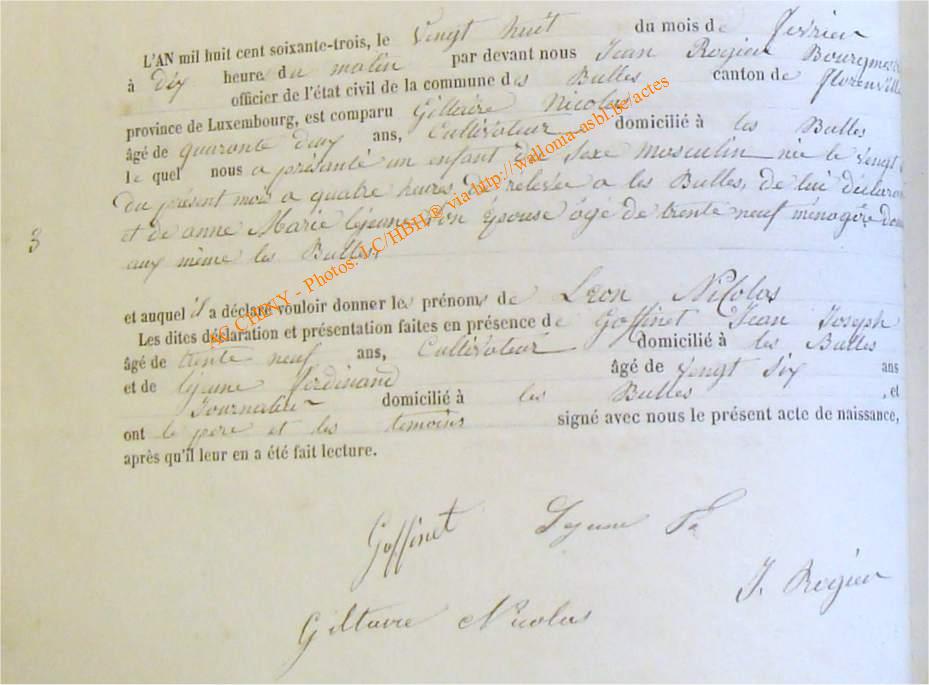 L'AN mil huit cent soixante-trois, le vingt huit du mois de fevrier
à Dix heures du matin par devant nous Jean Rogier Bourgmes
officier de l'état civil de la commune des Bulles canton de florenville
province de Luxembourg, est comparu Giltaire Nicolas
âgé de quaronte deux ans, Cultivateur domicilié à les Bulles
le quel nous a présenté un enfant du Sexe masculin née le vingt
du présent mois a quatre heures de relevée a les Bulles, de lui déclaran
3 et de anne Marie lejeune son Epouse âgé de trente neuf ménagère
aux même les Bulles,
et auquel il a déclaré vouloir donner les prénoms de Leon Nicolas
Les dites déclaration et présentation faites en présence de Goffinet Jean Joseph
âgé de trente neuf ans, Cultivateur domicilié à les Bulles
et de lejeune ferdinand âgé de vingt six ans
Journalier domicilié à les Bulles , et
ont le père et les temoins signé avec nous le présent acte de naissance,
après qu'il leur en a été fait lecture.
Goffinet Lejeune
J. Rogier
Giltaire Nicolas
AG CHINY - Photos: LC/HBH,® via http://wallonia-asbl.be/actes